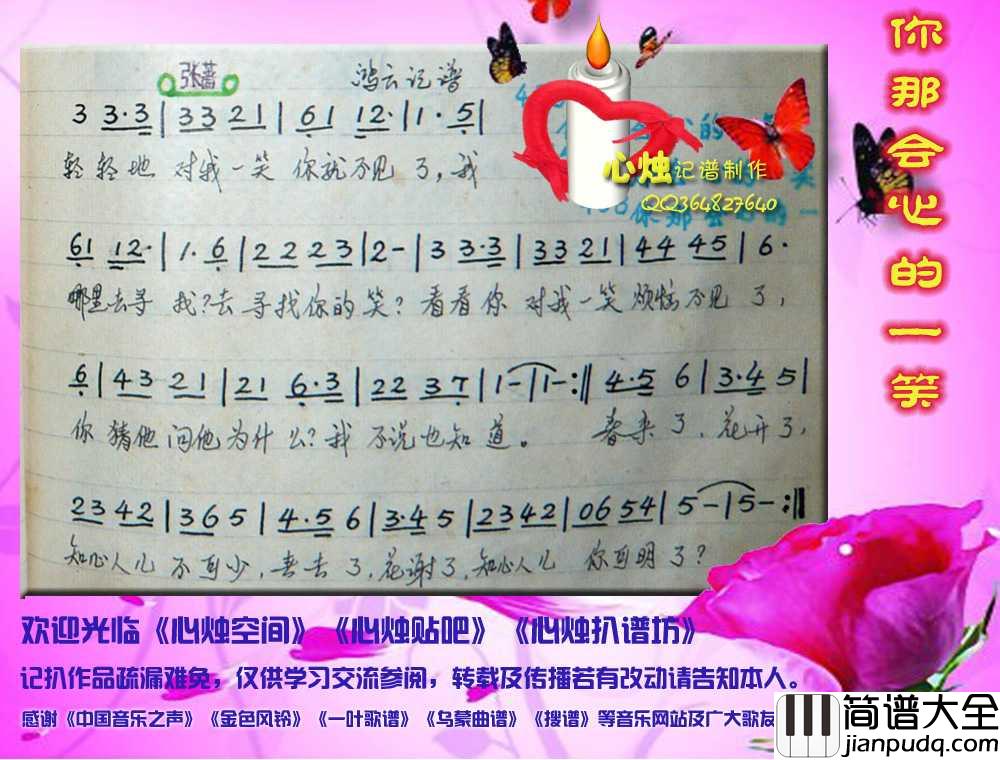 你那会心的一笑
张蔷 鸿云记谱
3 3·3|33 21|61 12·|1·5|
轻轻地 对我一笑 你就不见了,我
心烛记谱制作
QQ364827640
61 12·|1·6|22 23|2-|3 3·3|33 21|44 45|6·
哪里去寻 我?去寻找你的笑?看看你 对我一笑 烦恼不见了,
6|43 21|21 6·3|22 37|1-|1-:‖4·5 6|3·4 5|
你猜他问他为什么?我不说也知道。 春来了,花开了,
23 42|36 5|4·5 6|3·4 5|23 42|06 54|5-|5-:‖
知心人儿不可少,春去了,花谢了,知心人儿 你可明了?
欢迎光临《心烛空间》《心烛贴吧》《心烛扒谱坊》
记扒作品疏漏难免,仅供学习交流参阅,转载及传播若有改动请告知本人。
感谢《中国音乐之声》《金色风铃》《一叶歌谱》《乌蒙曲谱》《搜谱》等音乐网站及广大歌友
简谱大全
jianpudq.com